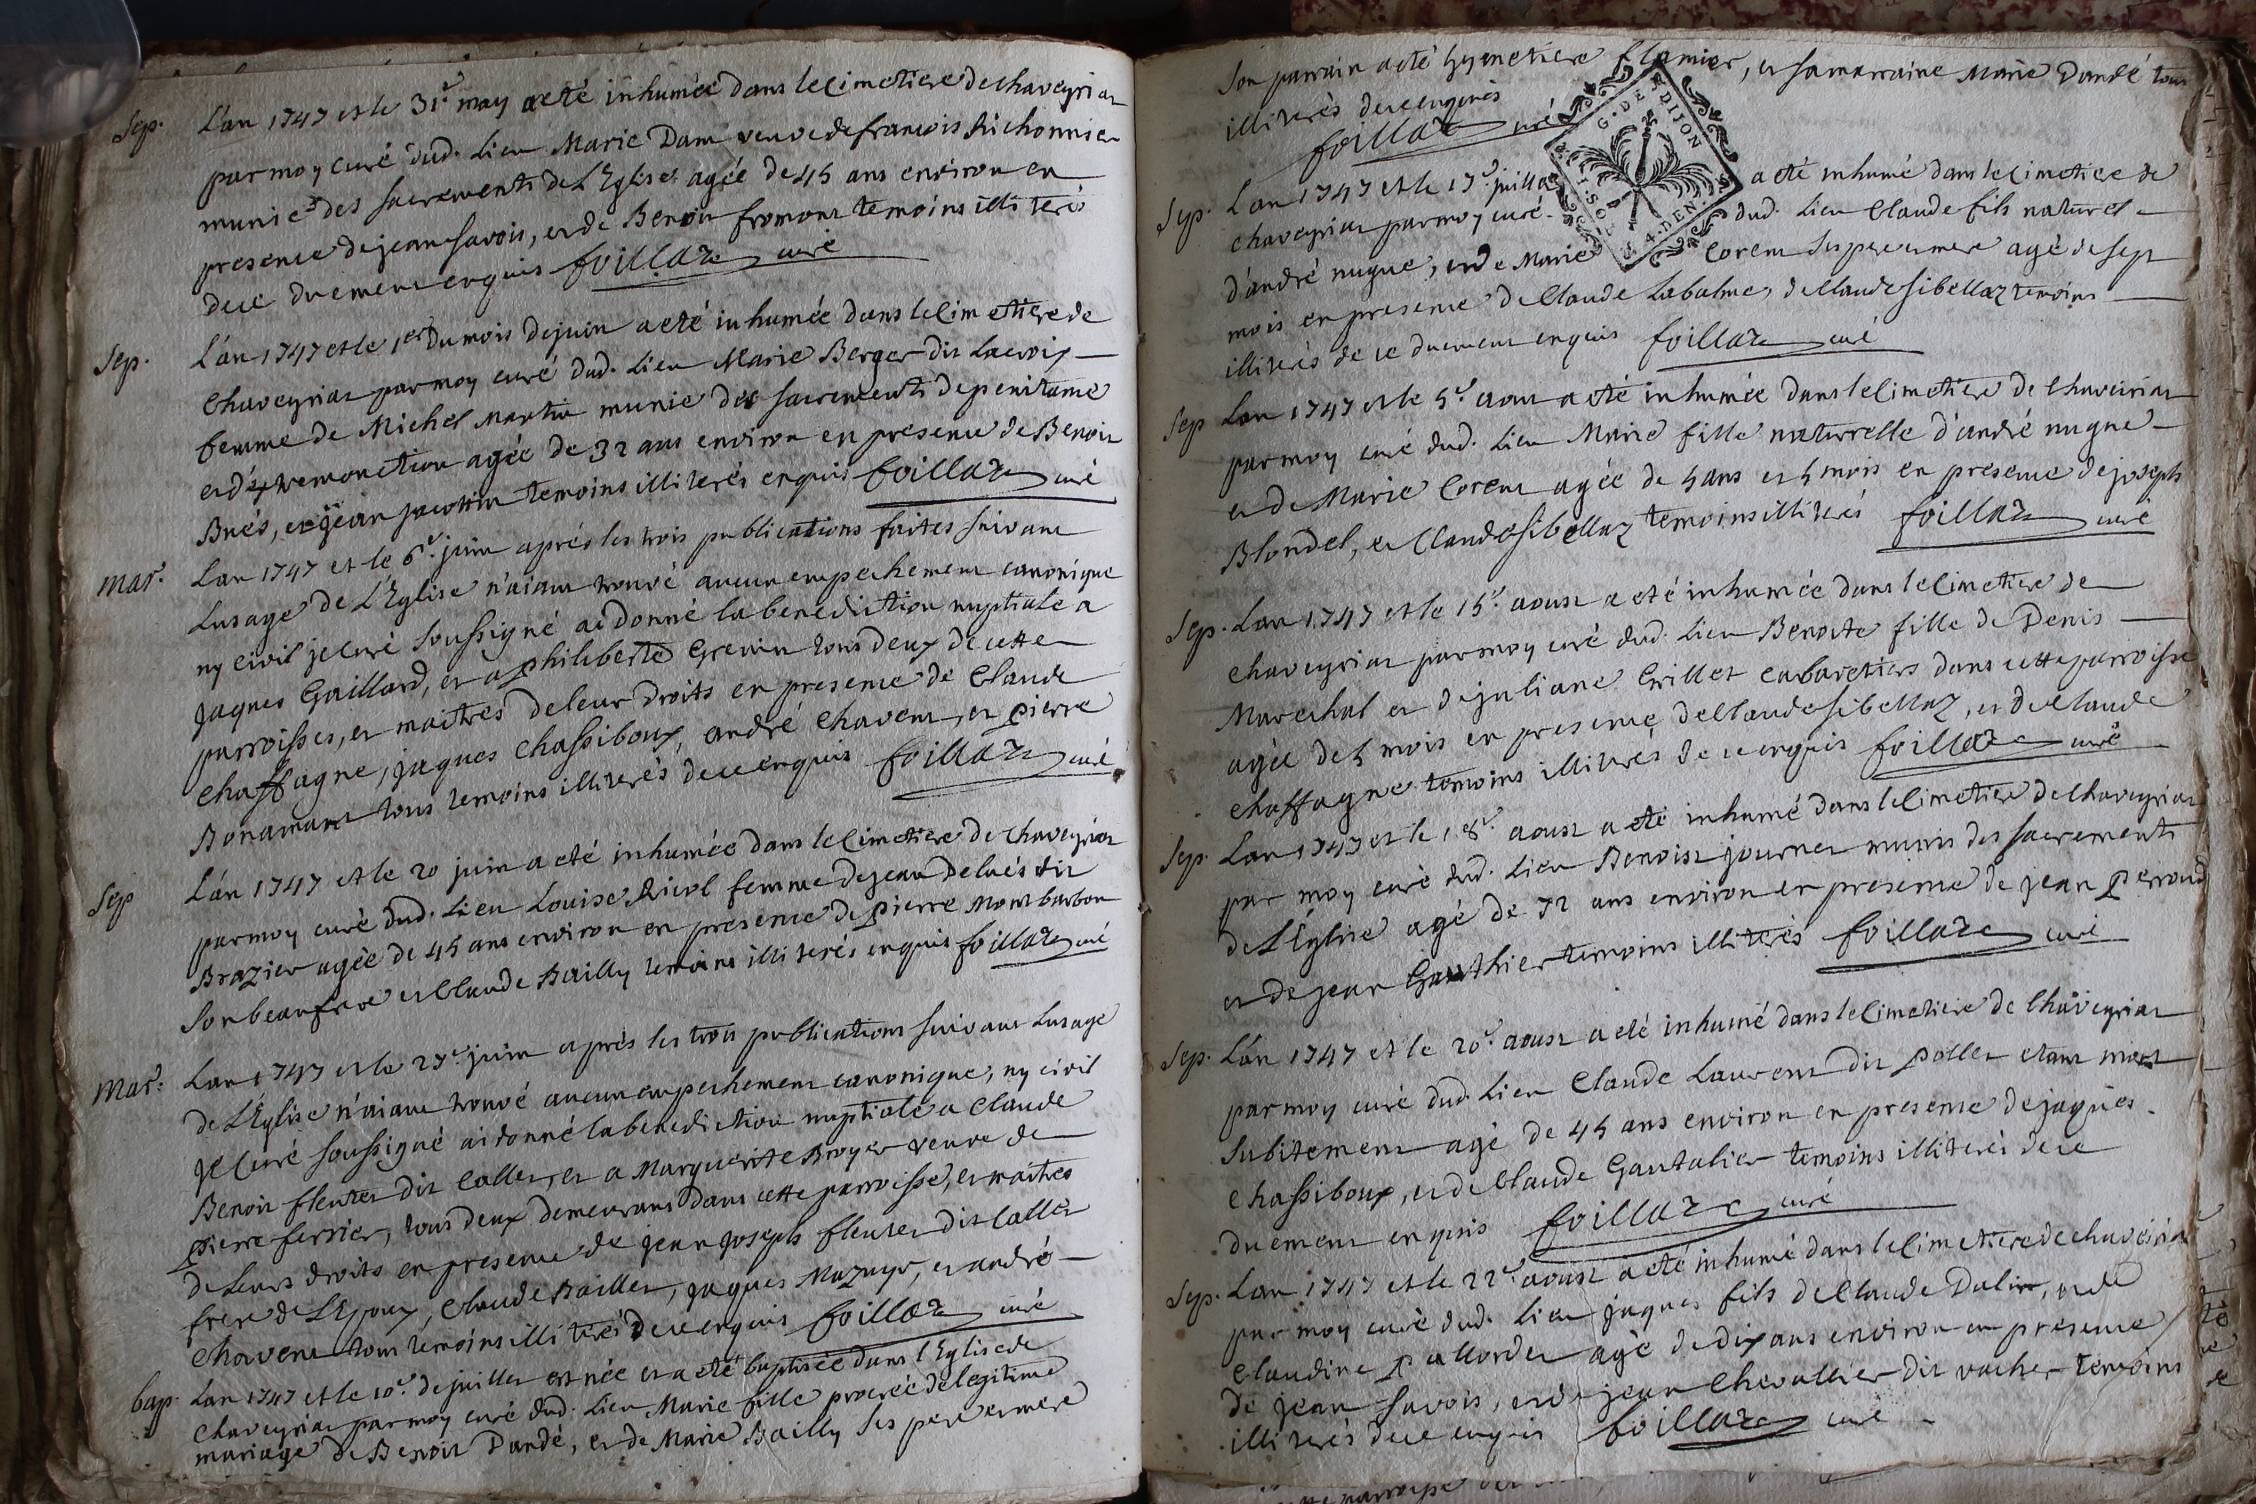 Sep. L'an 1747 et le 31e may a eté inhumée dans le cimetiere de chaveyriat
par moy curé dud. Lieu Marie Dam veuve de francois Richonnier
munie des sacrements de L'Eglise agée de 45 ans environ en
presence de jean Savois, et de Benoit fromont temoins illiterés
de ce duement enquis foillaz curé
Sep. L'an 1747 et le 1er du mois de juin a eté inhumée dans le Cimetiere de
chaveyriat par moy curé dud. Lieu Marie Berger dit Lacroix
femme de Michel Martin munie des sacrements de penitence
et d'extremonction agée de 32 ans environ en presence de Benoit
Bués, et jean jacottin temoins illiterés enquis foillaz curé
Mar. L'an 1747 et le 6e juin aprés les trois publications faites suivant
Lusage de L'Eglise n'aiant trouvé aucun empechement canonique
ny civil je Curé soussigné ai donné la benediction nuptiale a
jaques Gaillard, et a philiberte Grevin tous deux de cette
parroisses, et maitres de leur droits en presence de Claude
chaffagne, jaques chassiboux, andré Chavent, et pierre
Bonamant tous temoins illiterés de ce enquis foillaz curé
Sep L'an 1747 et le 20 juin a eté inhumée dans le Cimetiere de chaveyriat
par moy curé dud. Lieu Louise femme de jean Delués dit
Brazier agée de 45 ans environ en presence de pierre Montbarbon
Son beaufrere et Claude Bailly temoins illiterés enquis foillaz curé
Mar: L'an 1747 et le 27e juin aprés les trois publications suivant Lusage
de L'Eglise n'aiant trouvé aucun empechement canonique, ny civil
je Curé soussigné ai donné la benediction nuptiale a Claude
Benoit fleuret dit Collet, et a Marguerite Broyer veuve de
pierre ferrier, tous deux demeurans dans cette parroisse, et maitres
de Leurs droits en presence de jean joseph fleuret dit Collet
frere de L'Epoux, Claude Baillet, jaques Mazuyr, et andré
Chavent tous temoins illiterés de ce enquis foillaz curé
bap. L'an 1747 et le 10e de juillet est née et a eté baptisée dans L'Eglise de
chaveyriat par moy curé dud. Lieu Marie fille procreée de legitime
mariage de Benoit Dandé, et de Marie Bailly ses pere et mere
Son parrain a eté et sa marraine Marie Dandé tous
illiterés de ce enquis
foillaz curé
G. DE DIJON
1. SOL 4. DEN.
Sep. L'an 1747 et le 17e juillet a eté inhumé dans le Cimetiere de
chaveyriat par moy curé dud. Lieu Claude fils naturel
d'andré nugue, et de Marie Corent ses pere et mere agé de sept
mois en presence de Claude Labalme, de Claude Sibellaz temoins
illiterés de ce duement enquis foillaz curé
Sep L'an 1747 et le 5e aout a eté inhumée dans le Cimetiere de Chaveiriat
par moy curé dud. Lieu Marie fille naturelle d'andré nugue
et de Marie Corent agée de 5 ans et 5 mois en presence de joseph
Blondel, et Claude Sibellaz temoins illiterés foillaz curé
Sep. L'an 1747 et le 15e aoust a eté inhumée dans le Cimetiere de
chaveyriat par moy curé dud. Lieu Benoite fille de Denis
Marechal et de juliane Grillet cabaretiers dans cette parroisse
agée de 5 mois en presence de Claude Sibellaz, et de Claude
chaffagne temoins illiterés de ce enquis foillaz curé
Sep. L'an 1747 et le 18e aoust a eté inhumé dans le Cimetiere de chaveyriat
par moy curé dud. Lieu Benoist journet munis des sacrements
de L'Eglise agé de 72 ans environ en presence de jean perroud
et de jean Gauthier temoins illiterés foillaz curé
Sep. L'an 1747 et le 20e aoust a eté inhumé dans le Cimetiere de Chaveyriat
par moy curé dud. Lieu Claude Laurent dit pollet etant mort
subitement agé de 45 ans environ en presence de jaques
chassiboux, et de Claude Gantalier temoins illiterés de ce
duement enquis foillaz curé
Sep. L'an 1747 et le 22e aoust a eté inhumé dans le Cimetiere de chaveiriat
par moy curé dud. Lieu jaques fils de Claude Dulin, et de
Claudine pallordet agé de dix ans environ en presence
de jean Savois, et de jean Chevallier dit vacher temoins
illiterés de ce enquis foillaz curé